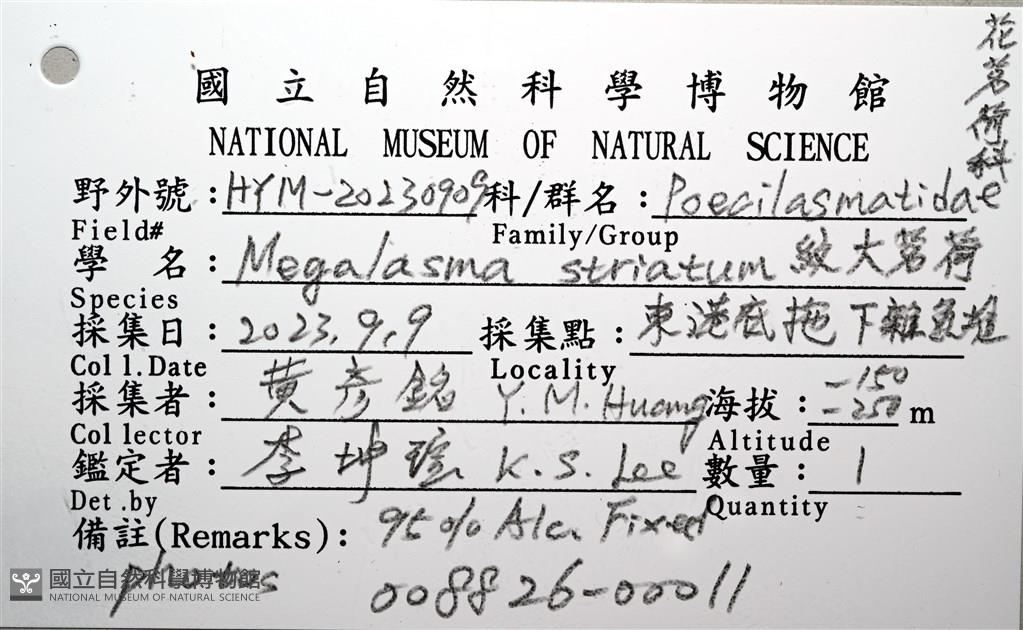 花茗荷科
國立自然科學博物館
NATIONAL MUSEUM OF NATURAL SCIENCE
野外號:HYM-20230909 科/群名:Poecilasmatidae
Field# Family/Group
學名:Megalasma striatum 紋大茗荷
Species
採集日:2023.9.9 採集點:東港底拖下雜魚堆
Coll.Date Locality
採集者:黃彥銘 Y.M.Huang 海拔:-150 -250 m
Collector Altitude
鑑定者:李坤瑄 K.S.Lee 數量:1
Det.by Quantity
備註(Remarks): 95% Alc. Fixed
photos 008826-00011
國立自然科學博物館
NATIONAL MUSEUM OF NATURAL SCIENCE